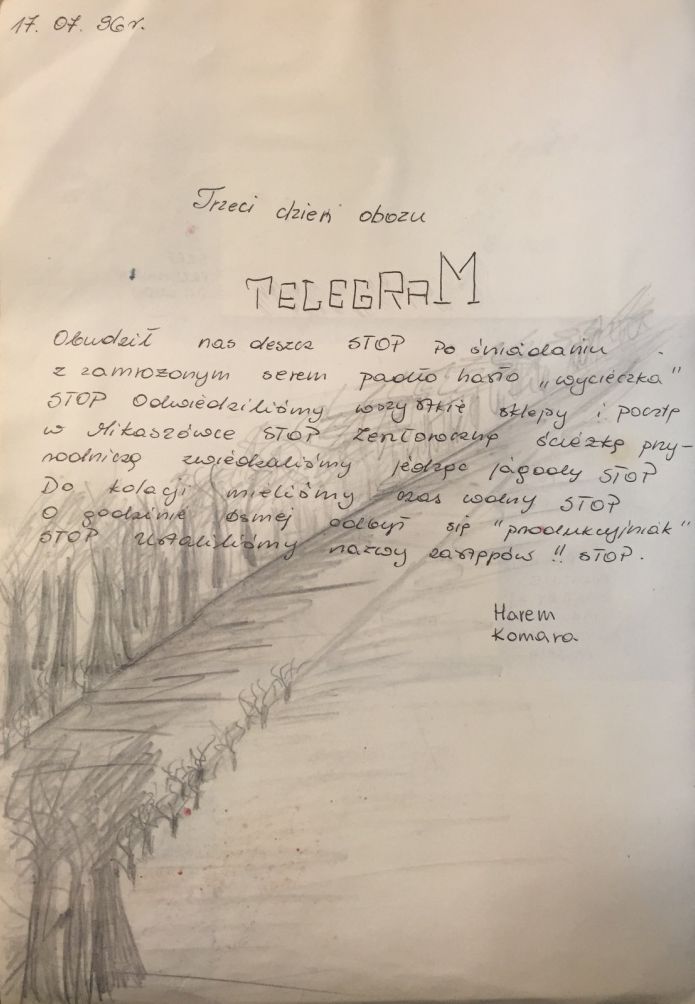 17. 07. 96 r.
Trzeci dzień obozu
TELEGRAM
Obudził nas deszcz STOP Po śniadaniu
z zamrożonym serem padło hasło „wycieczka"
STOP Odwiedziliśmy wszystkie sklepy i pocztę
w Mikaszówce STOP Zeszłoroczną ścieżkę przy-
rodniczą zwiedzaliśmy jedząc jagody STOP
Do kolacji mieliśmy czas wolny STOP
O godzinie ósmej odbył się "produkcyjniak"
STOP Ustaliliśmy nazwy zastępów !! STOP.
Harem
Komara